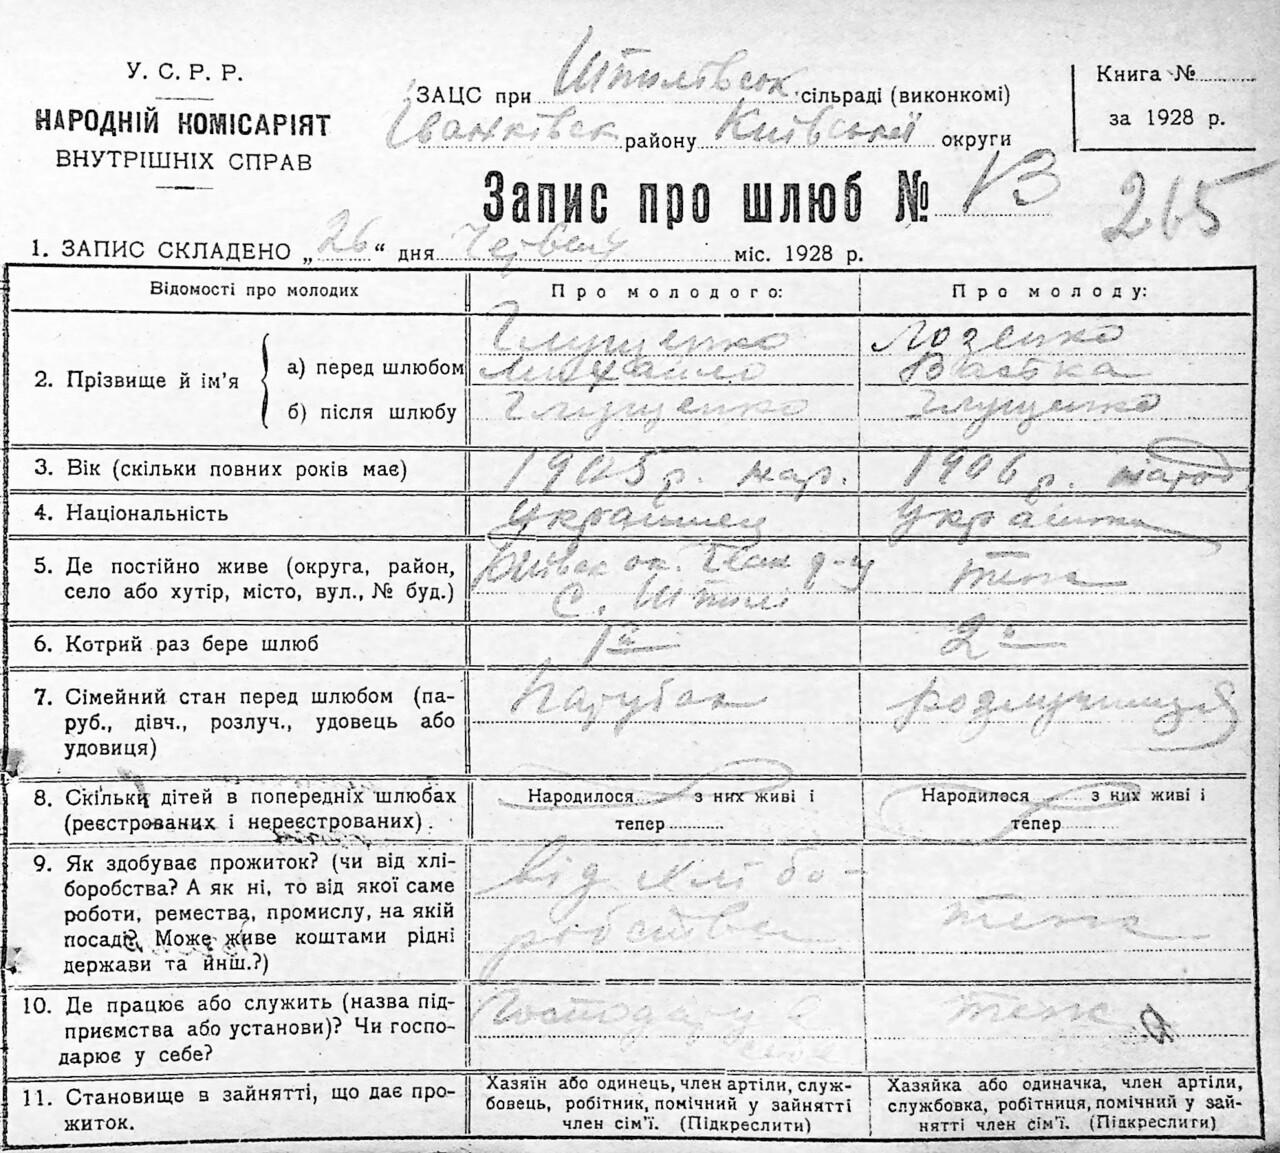 У. С. Р. Р.
НАРОДНІЙ КОМІСАРІЯТ
ВНУТРІШНІХ СПРАВ
ЗАЦС при Штилівськ сільраді (виконкомі)
Іванківськ району Київської округи
Книга №
за 1928 р.
Запис про шлюб № 13
265
1. ЗАПИС СКЛАДЕНО „26“ дня Червня міс. 1928 р.
Відомості про молодих
Про молодого:
Про молоду:
2. Прізвище й ім'я
а) перед шлюбом
Глущенко
Михайло
Лозенко
б) після шлюбу
Глущенко
Глущенко
3. Вік (скільки повних років має)
1905 р. нар.
1906 р. народ
4. Національність
Українец
Українка
5. Де постійно живе (округа, район,
село або хутір, місто, вул., № буд.)
Київск ок. р-у
С. Штилі
теж
6. Котрий раз бере шлюб
1й
2й
7. Сімейний стан перед шлюбом (па-
руб., дівч., розлуч., удовець або
удовиця)
Парубок
розлучниця
8. Скільки дітей в попередніх шлюбах
(реєстрованих і нереєстрованих).
Народилося з них живі і
тепер
Народилося з них живі і
тепер
9. Як здобуває прожиток? (чи від хлі-
боробства? А як ні, то від якої саме
роботи, ремества, промислу, на якій
посаді? Може живе коштами рідні
держави та инш.?)
від хлібо-
робства
теж
10. Де працює або служить (назва під-
приємства або установи)? Чи госпо-
дарює у себе?
Господарує
теж
11. Становище в зайнятті, що дає про-
житок.
Хазяїн або одинець, член артіли, служ-
бовець, робітник, помічний у зайнятті
член сім'ї. (Підкреслити)
Хазяйка або одиначка, член артіли,
службовка, робітниця, помічний у зай-
нятті член сім'ї. (Підкреслити)